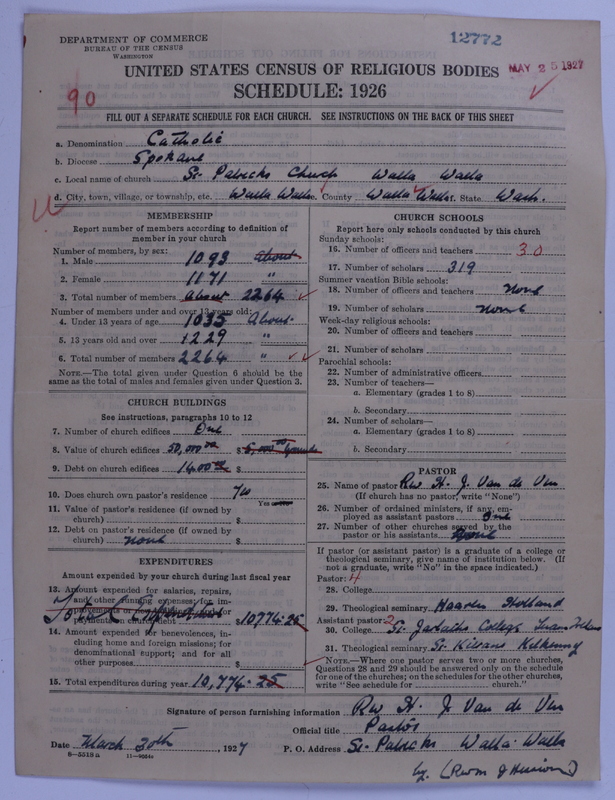 DEPARTMENT OF COMMERCE
BUREAU OF THE CENSUS
WASHINGTON
12772
MAY 25 1927
UNITED STATES CENSUS OF RELIGIOUS BODIES
SCHEDULE: 1926
90
FILL OUT A SEPARATE SCHEDULE FOR EACH CHURCH. SEE INSTRUCTIONS ON THE BACK OF THIS SHEET
a. Denomination Catholic
b. Diocese Spokane
c. Local name of church St Patricks Church Walla Walla
d. City, town, village, or township, etc. Walla Walla e. County Walla Walla f. State Wash.
MEMBERSHIP
Report number of members according to definition of
member in your church
Number of members, by sex:
1. Male 1093 about
2. Female 1171 "
3. Total number of members about 2264
Number of members under and over 13 years old:
4. Under 13 years of age 1035 about
5. 13 years old and over 1229 "
6. Total number of members 2264 "
NOTE.—The total given under Question 6 should be
same as the total of males and females given under Question 3.
CHURCH BUILDINGS
See instructions, paragraphs 10 to 12
7. Number of church edifices One
8. Value of church edifices 50,000.00 $
9. Debt on church edifices 1400.00 $
10. Does church own pastor's residence
Yes or no
11. Value of pastor's residence (if owned by
church) $
12. Debt on pastor's residence (if owned by
church) none $
EXPENDITURES
Amount expended by your church during last fiscal year
13. Amount expended for salaries, repairs,
and other running expenses; for im-
provements or
payments $10774.25
14. Amount expended for benevolences, in-
cluding home and foreign missions; for
denominational support; and for all
other purposes $
15. Total expenditures during year 10,774.25
CHURCH SCHOOLS
Report here only schools conducted by this church
Sunday schools:
16. Number of officers and teachers 30
17. Number of scholars 319
Summer vacation Bible schools:
18. Number of officers and teachers none
19. Number of scholars none
Week-day religious schools:
20. Number of officers and teachers
21. Number of scholars
Parochial schools:
22. Number of administrative officers
23. Number of teachers—
a. Elementary (grades 1 to 8)
b. Secondary
24. Number of scholars—
a. Elementary (grades 1 to 8)
b. Secondary
PASTOR
25. Name of pastor Rev H. J. Van de Ven
(If church has no pastor, write "None")
26. Number of ordained ministers, if any, em-
ployed as assistant pastors One
27. Number of other churches served by the
pastor or his assistants None
If pastor (or assistant pastor) is a graduate of a college or
theological seminary, give name of institution below. (If
not a graduate, write "No" in the space indicated.)
Pastor: 4
28. College
29. Theological seminary Haaren Holland
Assistant pastor: 2
30. College St. Jarlaths College
31. Theological seminary St Kierans Kilkenny
NOTE.—Where one pastor serves two or more churches,
Questions 28 and 29 should be answered only on the schedule
for one of the churches; on the schedules for the other churches,
write "See schedule for church."
Signature of person furnishing information Rev H. J Van de Ven
Official title Pastor
Date March 30th, 1927 P. O. Address St Patricks Walla Walla
8—5513a 11—9064a